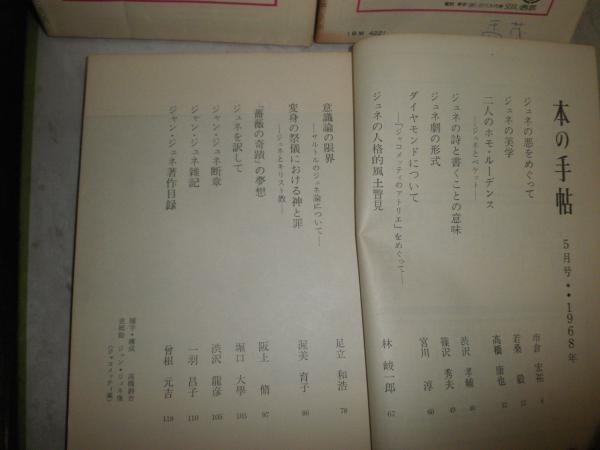 本の手帖
5月号・・1968年
ジュネの悪をめぐって
市倉 宏祐
ジュネの美学
若桑 毅
二人のホモ・ルーデンス
―ジュネとベケット―
高橋 康也
ジュネの詩と書くことの意味
渋沢 孝輔
ジュネ劇の形式
篠沢 秀夫
ダイヤモンドについて
―「ジャコメッティのアトリエ」をめぐって―
宮川 淳 60
ジュネの人格的風土瞥見
林 峻一郎 67
意識論の限界
―サルトルのジュネ論について―
足立 和浩 78
変身の祭儀における神と罪
―ジュネとキリスト教―
渥美 育子
『薔薇の奇蹟』の夢想
阪上 脩 97
ジュネを訳して
堀口 大學
ジャン・ジュネ断章
渋沢 龍彦 105
ジャン・ジュネ雑記
一羽 昌子 110
ジャン・ジュネ著作目録
曾根 元吉 118